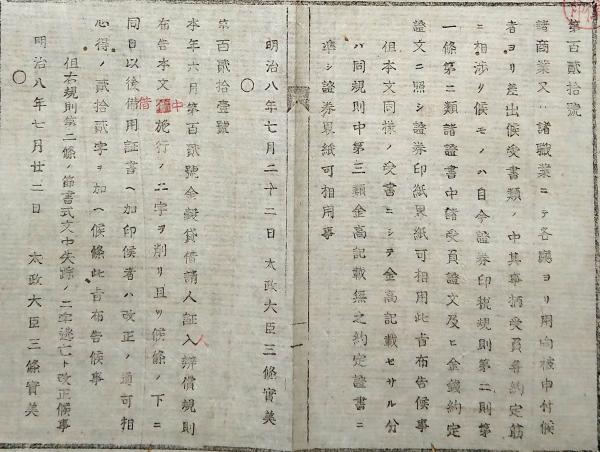 第百貳拾號
諸商業又ハ諸職業ニテ各廳ヨリ用向被申付候
者ヨリ差出候受書類ノ中其事柄受負等約定筋
ニ相渉リ候モノハ自今證券印税規則第二則第
一條第二類諸證書中諸受負證文及ヒ金錢約定
證文ニ照シ證券印紙界紙可相用此旨布告候事
但本文同様ノ受書ニシテ金高記載セサル分
ハ同規則中第三類金高記載無之約定證書ニ
準シ證券界紙可相用事
明治八年七月二十二日 太政大臣三條實美
○
第百貳拾壹號
本年六月第百貳號金穀貸借請人証人辨償規則
人
布告本文施行ノ二字ヲ削リ且リ候條ノ下ニ
中
借
同日以後借用証書ヘ加印候者ハ改正ノ通可相
心得ノ貳拾貳字ヲ加ヘ候條此旨布告候事
但右規則第二條ノ節書式文中失踪ノ二字逃亡ト改正候事
明治八年七月廿二日 太政大臣三條實美
○